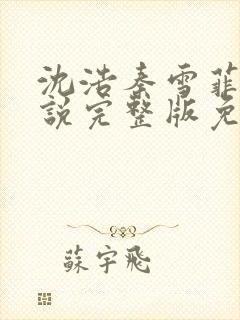 沈浩秦雪菲
說完整版免
蘇宇飛